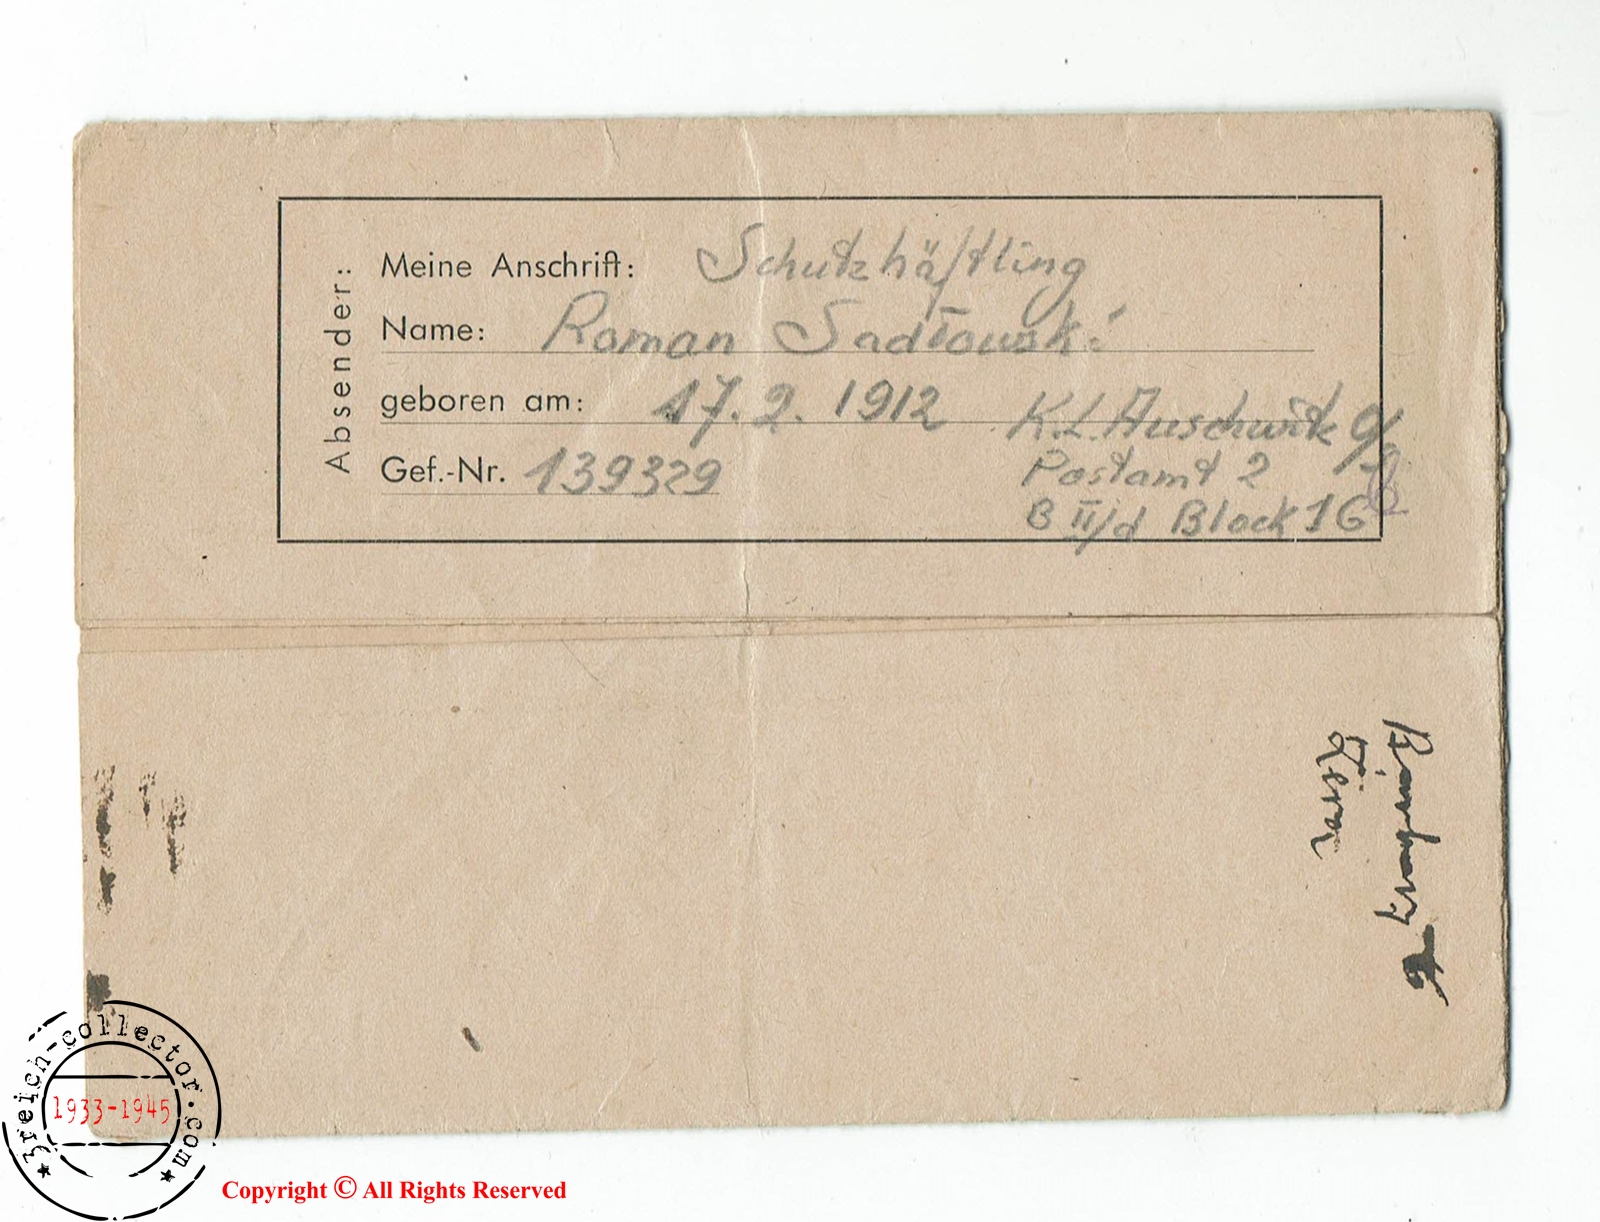 Absender:
Meine Anschrift: Schutzhäftling
Name: Roman Sadłowski
geboren am: 17. 2. 1912
K.L. Auschwitz O/S
Gef.-Nr. 139329
Postamt 2
B II/d Block 16
3reich-collector.com
1933-1945
Copyright © All Rights Reserved